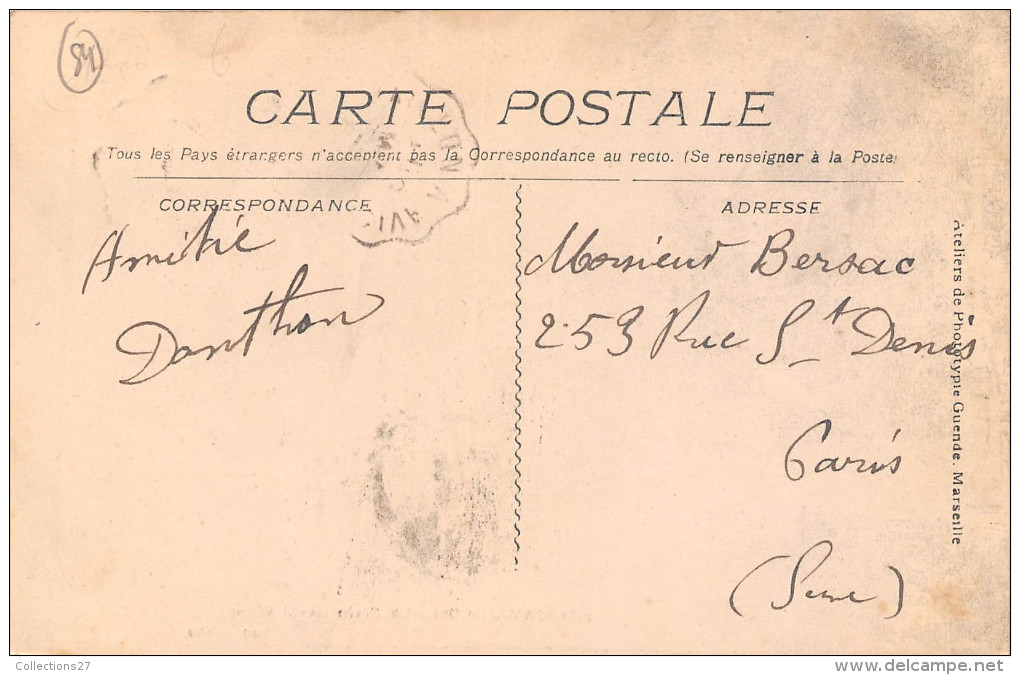 84
CARTE POSTALE
Tous les Pays étrangers n'acceptent pas la Correspondance au recto. (Se renseigner à la Poste)
CORRESPONDANCE
ADRESSE
Amitié
Danthon
Monsieur Bersac
253 Rue St Denis
Paris
(Seine)
Ateliers de Phototypie Guende. Marseille
Collections27
www.delcampe.net